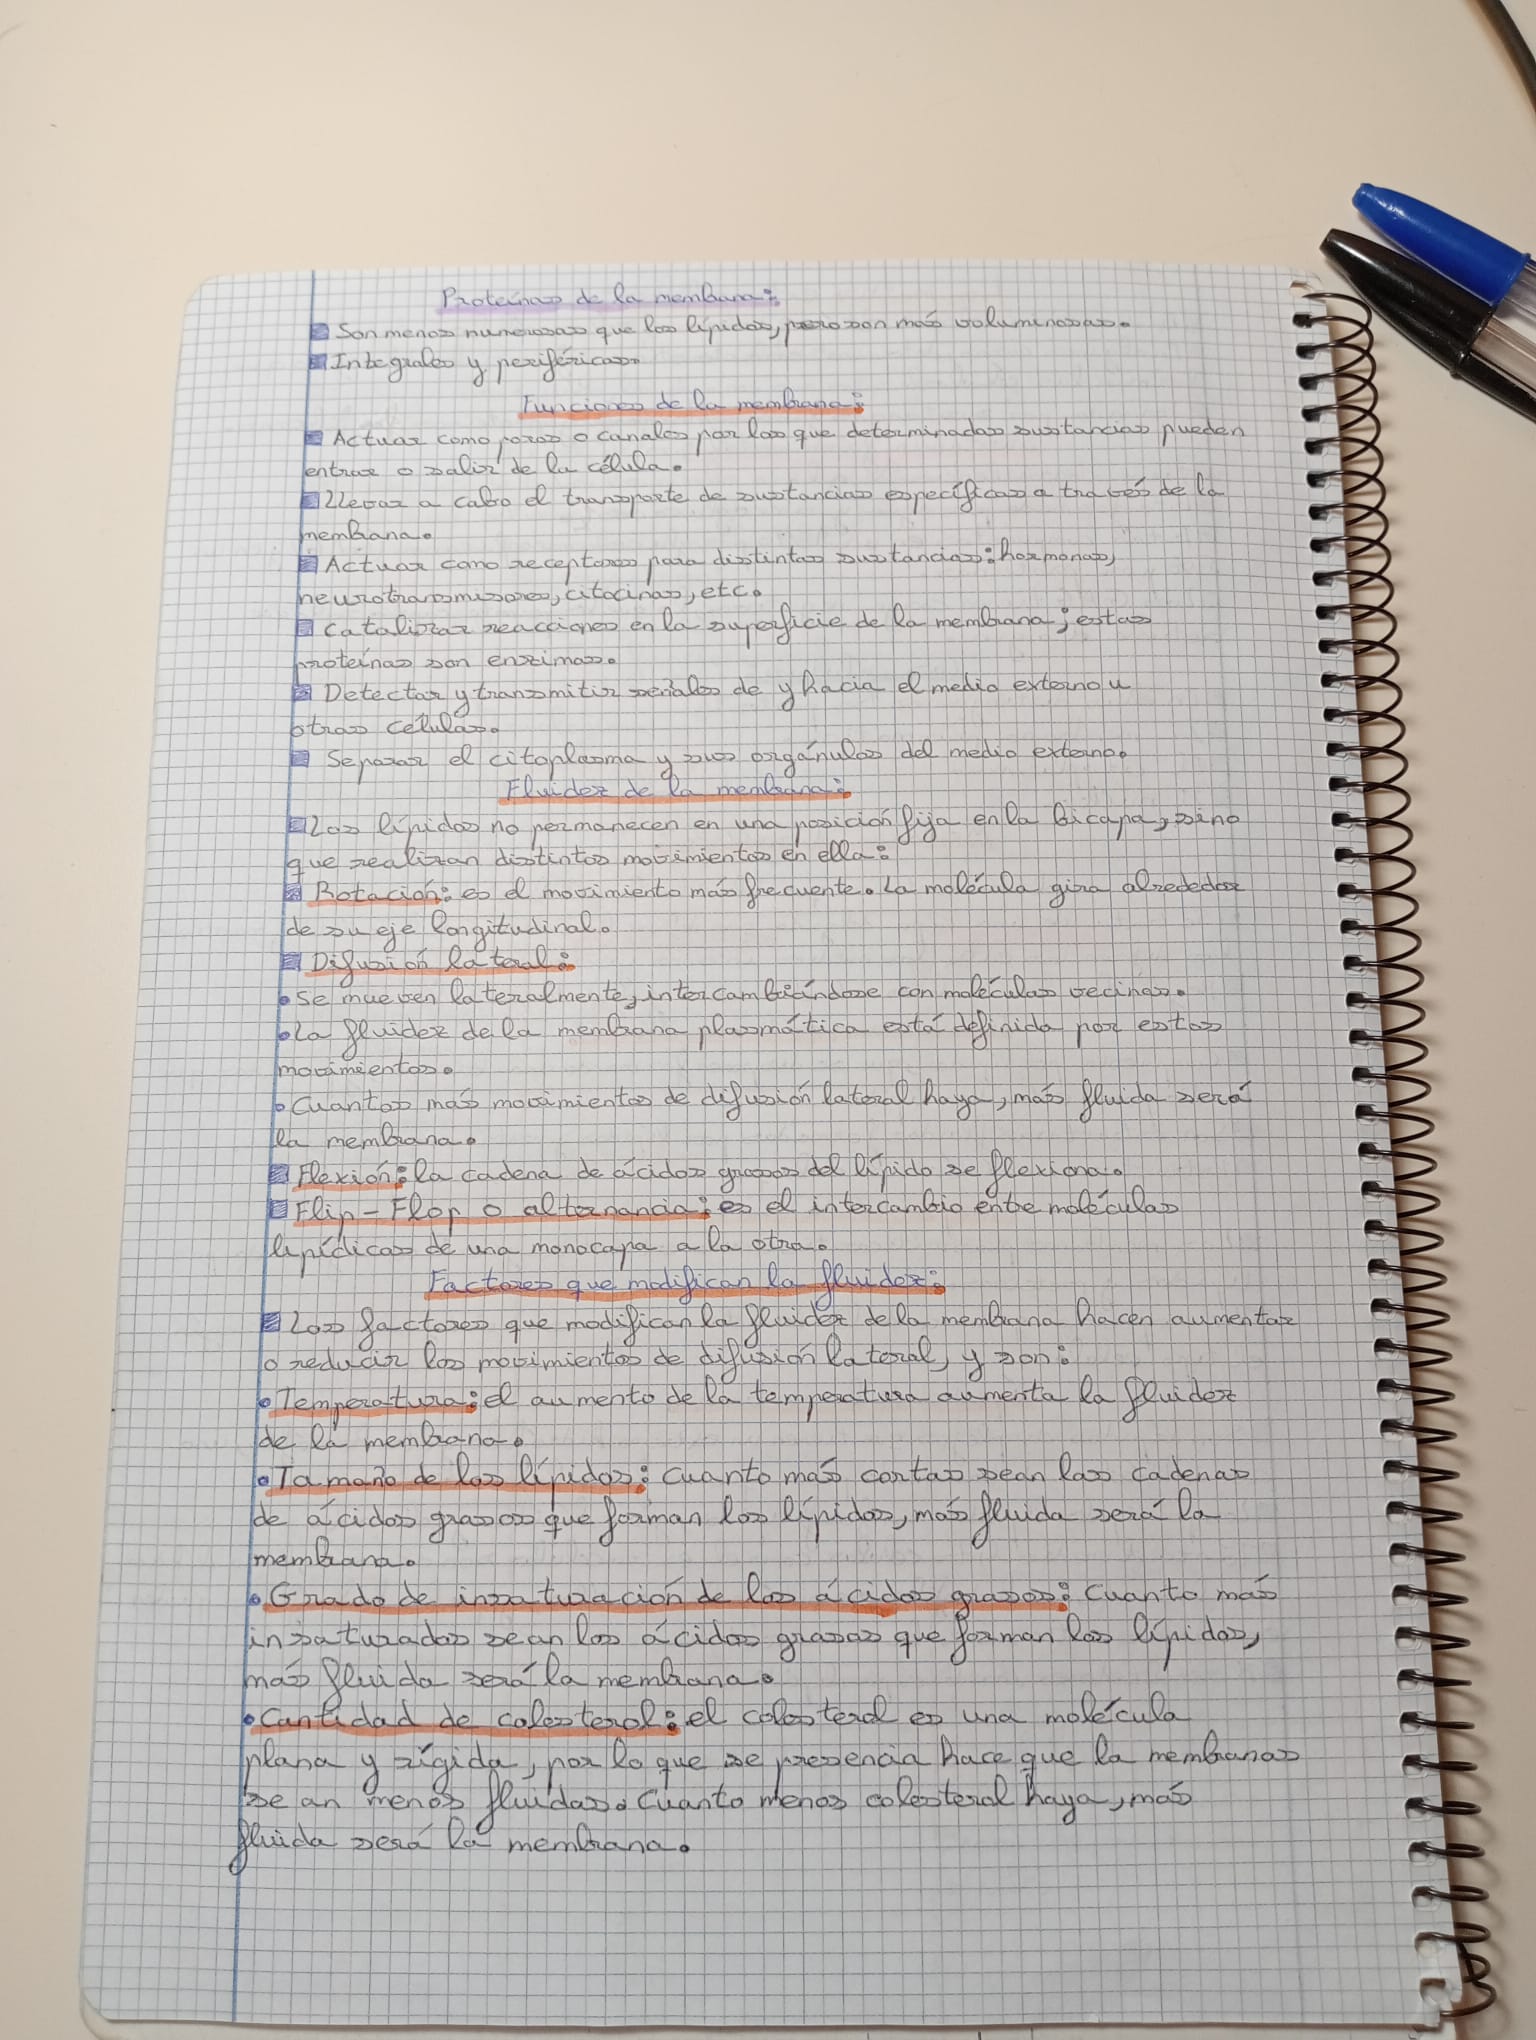 Proteínas de la membrana:
Son menos numerosas que los lípidos, pero son más voluminosas.
Integrales y periféricas.
Funciones de la membrana:
Actuar como poros o canales por los que determinadas sustancias pueden
entrar o salir de la célula.
Llevar a cabo el transporte de sustancias específicas a través de la
membrana.
Actuar como receptores para distintas sustancias: hormonas,
neurotransmisores, citocinas, etc.
Catalizar reacciones en la superficie de la membrana; estas
proteínas son enzimas.
Detectar y transmitir señales de y hacia el medio externo u
otras células.
Separar el citoplasma y sus orgánulos del medio externo.
Fluidez de la membrana:
Los lípidos no permanecen en una posición fija en la bicapa, sino
que realizan distintos movimientos en ella:
Rotación: es el movimiento más frecuente. La molécula gira alrededor
de su eje longitudinal.
Difusión lateral:
• Se mueven lateralmente, intercambiándose con moléculas vecinas.
• La fluidez de la membrana plasmática está definida por estos
movimientos.
• Cuantos más movimientos de difusión lateral haya, más fluida será
la membrana.
Flexión: la cadena de ácidos grasos del lípido se flexiona.
Flip-Flop o alternancia: es el intercambio entre moléculas
lipídicas de una monocapa a la otra.
Factores que modifican la fluidez:
Los factores que modifican la fluidez de la membrana hacen aumentar
o reducir los movimientos de difusión lateral, y son:
• Temperatura: el aumento de la temperatura aumenta la fluidez
de la membrana.
• Tamaño de los lípidos: cuanto más cortas sean las cadenas
de ácidos grasos que forman los lípidos, más fluida será la
membrana.
• Grado de insaturación de los ácidos grasos: cuanto más
insaturados sean los ácidos grasos que forman los lípidos,
más fluida será la membrana.
• Cantidad de colesterol: el colesterol es una molécula
plana y rígida, por lo que se presencia hace que la membranas
sean menos fluidas. Cuanto menos colesterol haya, más
fluida será la membrana.